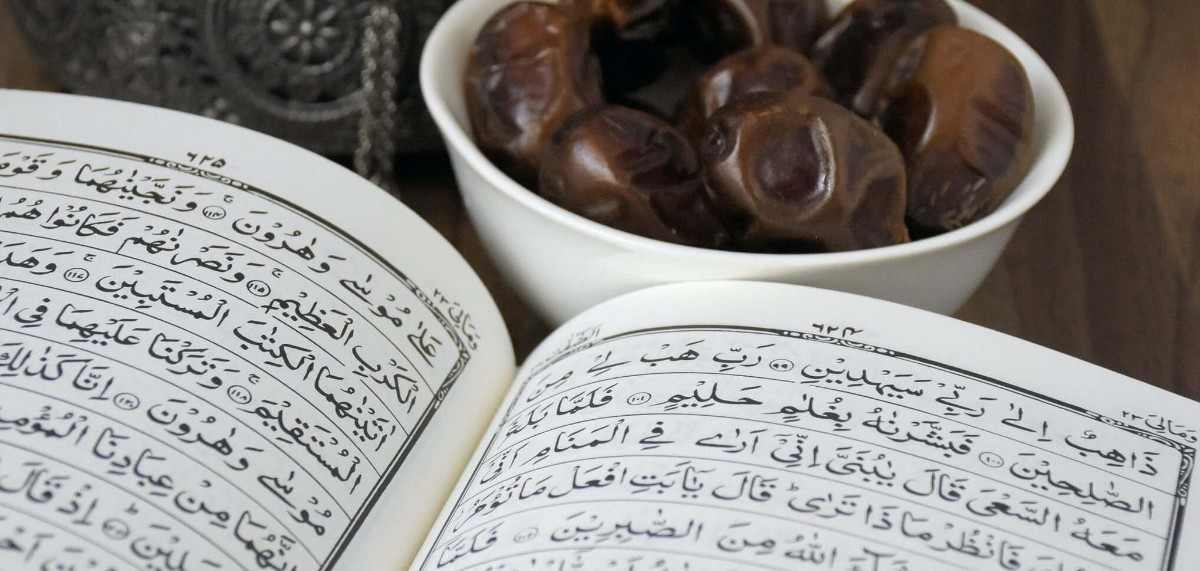 ومالي ٢٣
٦٢٤
ذَاهِبٌ اِلٰى رَبِّىْ سَيَهْدِيْنِ ﴿٩٩﴾ رَبِّ هَبْ لِىْ مِنَ
الصّٰلِحِيْنَ ﴿١٠٠﴾ فَبَشَّرْنٰهُ بِغُلٰمٍ حَلِيْمٍ ﴿١٠١﴾ فَلَمَّا بَلَغَ
مَعَهُ السَّعْىَ قَالَ يٰبُنَىَّ اِنِّىْٓ اَرٰى فِى الْمَنَامِ اَنِّىْٓ
فَانْظُرْ مَاذَا تَرٰى ؕ قَالَ يٰۤاَبَتِ افْعَلْ مَا تُؤْمَرُ
اللّٰهُ مِنَ الصّٰبِرِيْنَ ﴿١٠٢﴾ فَلَمَّآ
ومالي ٢٣
٦٢٥
عَلٰى مُوْسٰى وَهٰرُوْنَ ﴿١١٤﴾ وَنَجَّيْنٰهُمَا
الْكَرْبِ الْعَظِيْمِ ﴿١١٥﴾ وَنَصَرْنٰهُمْ فَكَانُوْا هُمُ
اٰتَيْنٰهُمَا الْكِتٰبَ الْمُسْتَبِيْنَ ﴿١١٧﴾
الْمُسْتَقِيْمَ ﴿١١٨﴾ وَتَرَكْنَا عَلَيْهِمَا فِى
مُوْسٰى وَهٰرُوْنَ ﴿١٢٠﴾ اِنَّا كَذٰلِكَ
اِنَّهُمَا مِنْ عِبَادِنَا
اِذْ قَالَ